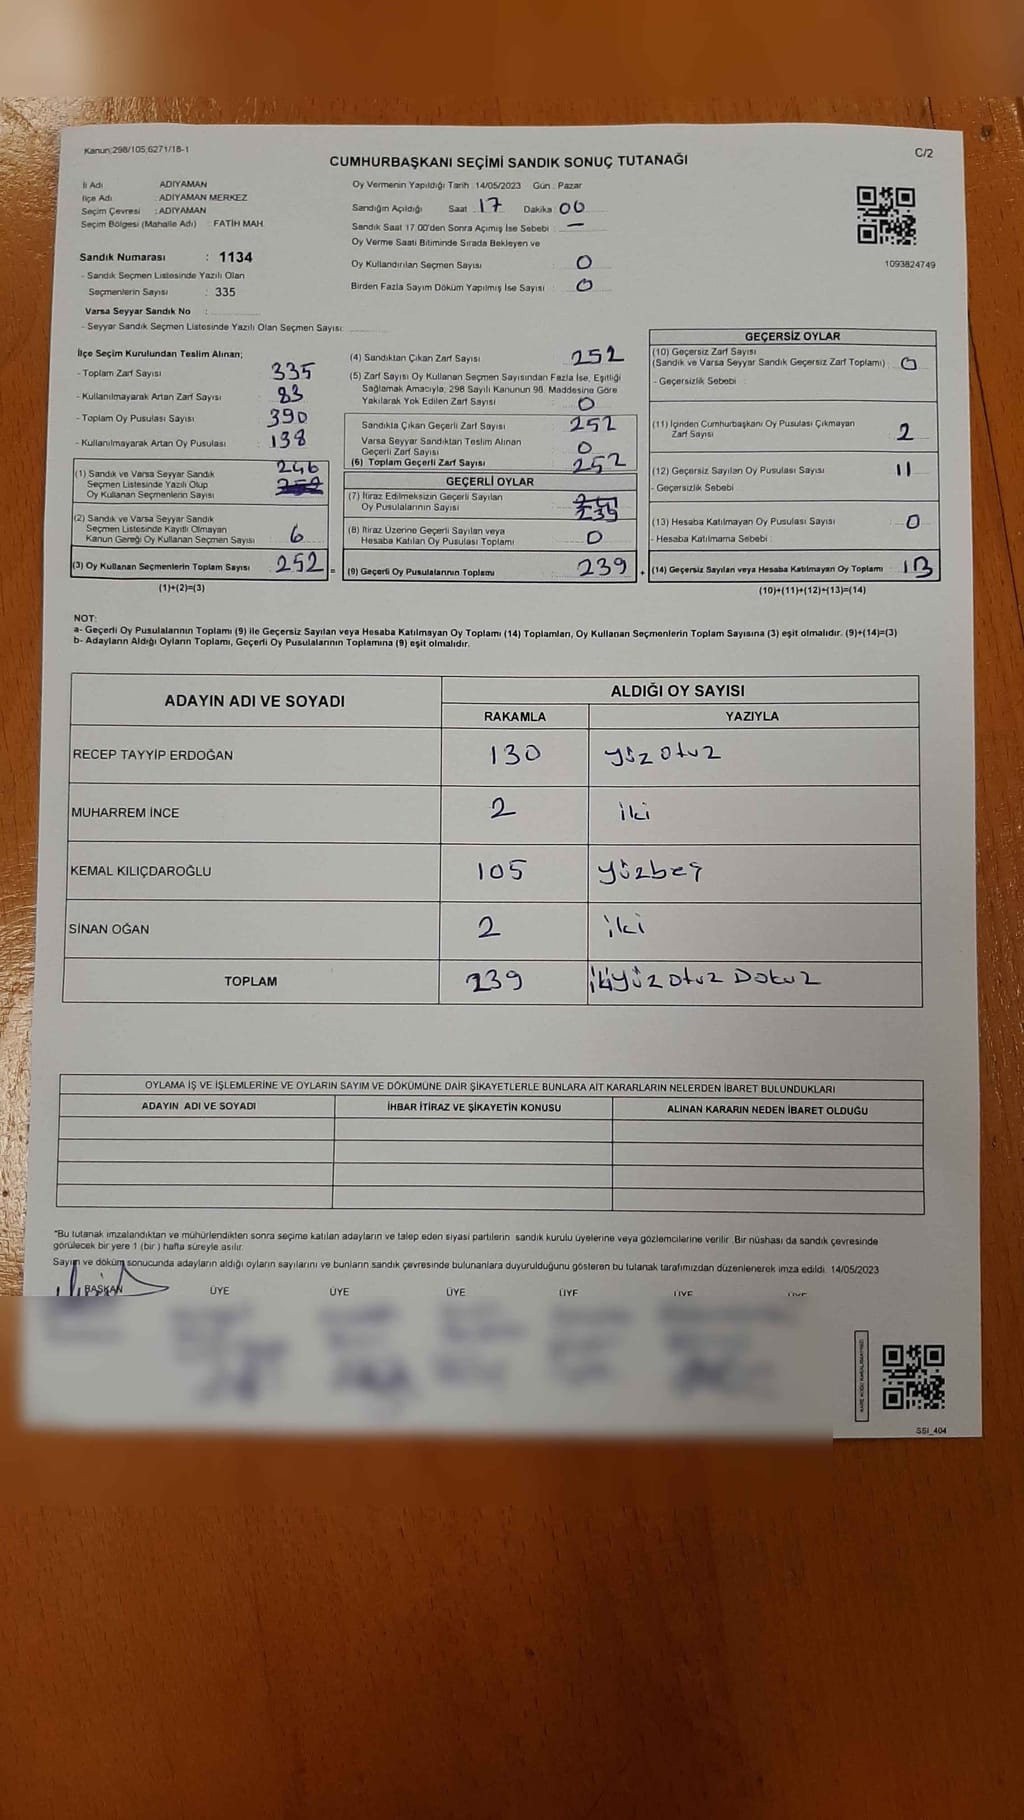 Kanun:298/105,6271/18-1
C/2
CUMHURBAŞKANI SEÇİMİ SANDIK SONUÇ TUTANAĞI
İl Adı ADIYAMAN
İlçe Adı : ADIYAMAN MERKEZ
Seçim Çevresi : ADIYAMAN
Seçim Bölgesi (Mahalle Adı) : FATİH MAH.
Sandık Numarası : 1134
- Sandık Seçmen Listesinde Yazılı Olan
Seçmenlerin Sayısı : 335
Varsa Seyyar Sandık No :
- Seyyar Sandık Seçmen Listesinde Yazılı Olan Seçmen Sayısı:
Oy Vermenin Yapıldığı Tarih : 14/05/2023 Gün : Pazar
Sandığın Açıldığı Saat 17 Dakika 00
Sandık Saat 17.00'den Sonra Açımış İse Sebebi : —
Oy Verme Saati Bitiminde Sırada Bekleyen ve
Oy Kullandırılan Seçmen Sayısı : 0
Birden Fazla Sayım Döküm Yapılmış İse Sayısı : 0
1093824749
İlçe Seçim Kurulundan Teslim Alınan;
- Toplam Zarf Sayısı : 335
- Kullanılmayarak Artan Zarf Sayısı : 83
- Toplam Oy Pusulası Sayısı : 390
- Kullanılmayarak Artan Oy Pusulası : 138
(1) Sandık ve Varsa Seyyar Sandık 246
Seçmen Listesinde Yazılı Olup
Oy Kullanan Seçmenlerin Sayısı
(2) Sandık ve Varsa Seyyar Sandık
Seçmen Listesinde Kayıtlı Olmayan
Kanun Gereği Oy Kullanan Seçmen Sayısı 6
(3) Oy Kullanan Seçmenlerin Toplam Sayısı 252 =
(1)+(2)=(3)
(4) Sandıktan Çıkan Zarf Sayısı 252
(5) Zarf Sayısı Oy Kullanan Seçmen Sayısından Fazla İse, Eşitliği
Sağlamak Amacıyla; 298 Sayılı Kanunun 98. Maddesine Göre
Yakılarak Yok Edilen Zarf Sayısı 0
Sandıkta Çıkan Geçerli Zarf Sayısı 252
Varsa Seyyar Sandıktan Teslim Alınan
Geçerli Zarf Sayısı 0
(6) Toplam Geçerli Zarf Sayısı 252
GEÇERLİ OYLAR
(7) İtiraz Edilmeksizin Geçerli Sayılan
Oy Pusulasının Sayısı 239
(8) İtiraz Üzerine Geçerli Sayılan veya
Hesaba Katılan Oy Pusulası Toplamı 0
(9) Geçerli Oy Pusulalarının Toplamı 239 +
GEÇERSİZ OYLAR
(10) Geçersiz Zarf Sayısı
(Sandık ve Varsa Seyyar Sandık Geçersiz Zarf Toplamı) : 0
- Geçersizlik Sebebi :
(11) İçinden Cumhurbaşkanı Oy Pusulası Çıkmayan
Zarf Sayısı 2
(12) Geçersiz Sayılan Oy Pusulası Sayısı 11
- Geçersizlik Sebebi :
(13) Hesaba Katılmayan Oy Pusulası Sayısı 0
- Hesaba Katılmama Sebebi :
(14) Geçersiz Sayılan veya Hesaba Katılmayan Oy Toplamı 13
(10)+(11)+(12)+(13)=(14)
NOT:
a- Geçerli Oy Pusulalarının Toplamı (9) ile Geçersiz Sayılan veya Hesaba Katılmayan Oy Toplamı (14) Toplamları, Oy Kullanan Seçmenlerin Toplam Sayısına (3) eşit olmalıdır. (9)+(14)=(3)
b- Adayların Aldığı Oyların Toplamı, Geçerli Oy Pusulalarının Toplamına (9) eşit olmalıdır.
ADAYIN ADI VE SOYADI ALDIĞI OY SAYISI
RAKAMLA YAZIYLA
RECEP TAYYİP ERDOĞAN 130 yüz otuz
MUHARREM İNCE 2 iki
KEMAL KILIÇDAROĞLU 105 yüzbeş
SİNAN OĞAN 2 iki
TOPLAM 239 ikiyüz otuz Dokuz
OYLAMA İŞ VE İŞLEMLERİNE VE OYLARIN SAYIM VE DÖKÜMÜNE DAİR ŞİKAYETLERLE BUNLARA AİT KARARLARIN NELERDEN İBARET BULUNDUKLARI
ADAYIN ADI VE SOYADI İHBAR İTİRAZ VE ŞİKAYETİN KONUSU ALINAN KARARIN NEDEN İBARET OLDUĞU
*Bu tutanak imzalandıktan ve mühürlendikten sonra seçime katılan adayların ve talep eden siyasi partilerin sandık kurulu üyelerine veya gözlemcilerine verilir. Bir nüshası da sandık çevresinde
görülecek bir yere 1 (bir) hafta süreyle asılır.
Sayım ve döküm sonucunda adayların aldığı oyların sayılarını ve bunların sandık çevresinde bulunanlara duyurulduğunu gösteren bu tutanak tarafımızdan düzenlenerek imza edildi. 14/05/2023
BAŞKAN ÜYE ÜYE ÜYE ÜYE ÜYE ÜYE
SSI_404